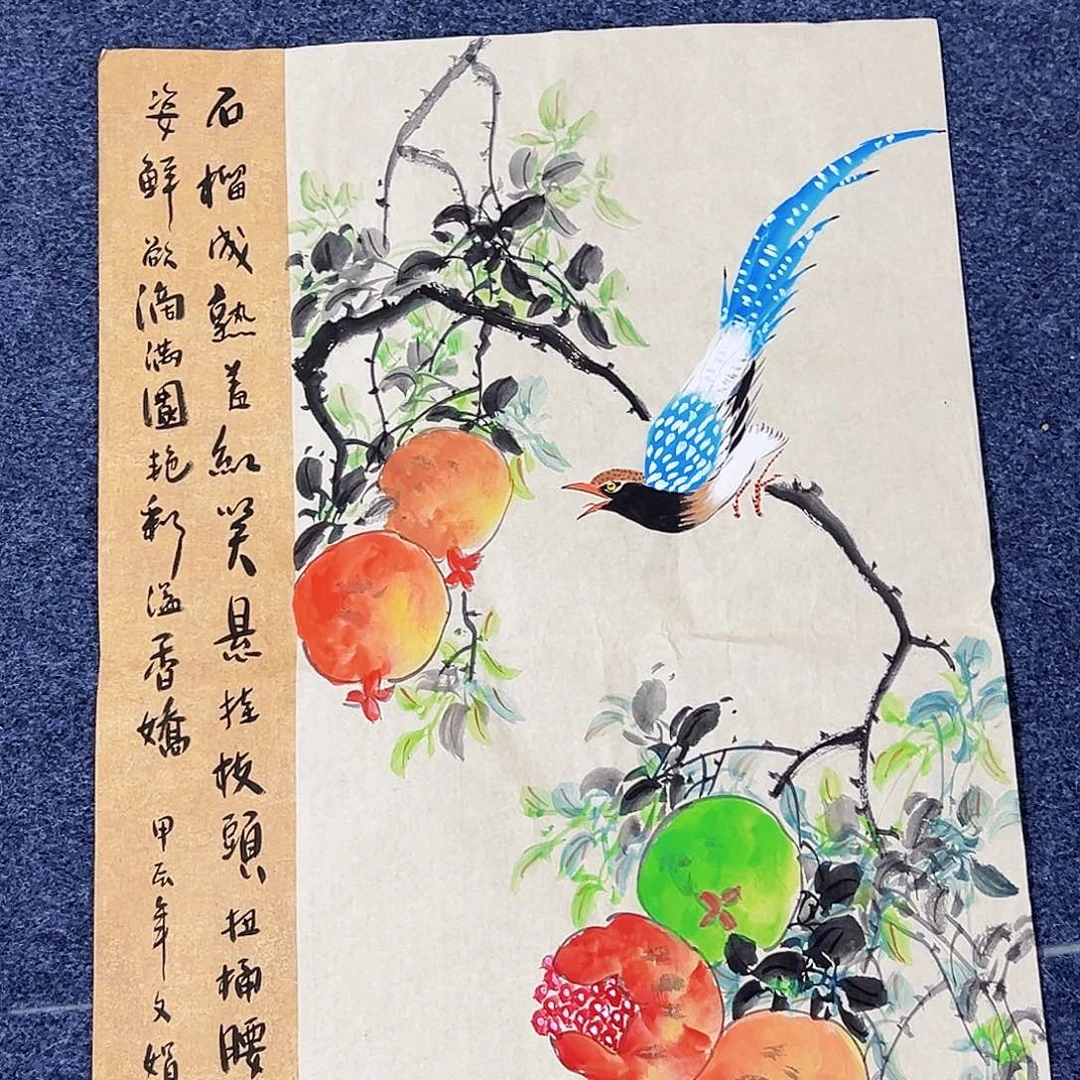 石榴成熟羞红笑悬挂枝頭扭捅腰
姿鮮欲滴满園艳彩溢香嬌
甲辰年文娟